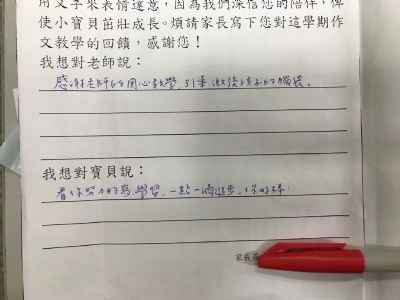 用文字來表情達意,因為我們深信您的陪伴,俾
使小寶貝茁壯成長。煩請家長寫下您對這學期作
文教學的回饋,感謝您!
我想對老師說:
感謝老師的用心教學,引導激後孩子的
我想對寶貝說:
看你努力的學習,一點一滴進步,